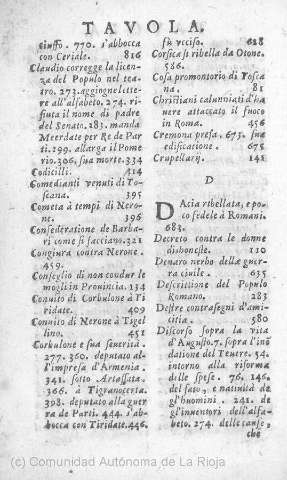 TAVOLA.
ciuffo. 770. s'abbocca
con Ceriale. 816
Claudio corregge la licen-
za del Populo nel tea-
tro. 273. aggiugne lette-
re all'alfabeto. 274. ri-
fiuta il nome di padre
del Senato. 283. manda
Meerdate per Re de Par
ti. 299. allarga il Pome-
rio. 306. sua morte. 334
Codicilli. 414
Comedianti venuti di To-
scana. 395
Cometa à tempi di Nero-
ne. 396
Confederatione de Barba-
ri come si facciano. 321
Congiura contra Nerone.
459.
Conseglio di non condur le
mogli in Prouincia. 134
Conuito di Corbulone à Ti
ridate. 409
Conuito di Nerone à Tigel
lino. 451
Corbulone e sua seuerità.
277. 360. deputato al-
l'impresa d'Armenia.
341. sotto Artassata.
366. à Tigranocerta.
398. deputato alla guer
ra de Parti. 444. s'ab-
bocca con Tiridate. 446.
fù vcciso. 628
Corsica si ribella da Otone.
586.
Cosa promontorio di Tosca
na. 81
Christiani calunniati d'ha
uere attaccato il fuoco
in Roma. 456
Cremona presa. 675. sua
edificatione. 675
Crupellarij. 141
D
DAcia ribellata, e po-
co fedele à Romani.
683.
Decreto contra le donne
dishoneste. 110
Denaro nerbo della guer-
ra ciuile. 635
Descrittione del Populo
Romano. 283
Destre contrasegni d'ami-
citia. 580
Discorso sopra la vita
d'Augusto. 7. sopra l'inō
datione del Teuere. 54.
intorno alla riforma
delle spese. 76. 146.
del fato, e natiuità de
gl'huomini. 241. de
gl'inuentori dell'alfa-
beto. 274. delle cause,
che
(c) Comunidad Autónoma de La Rioja